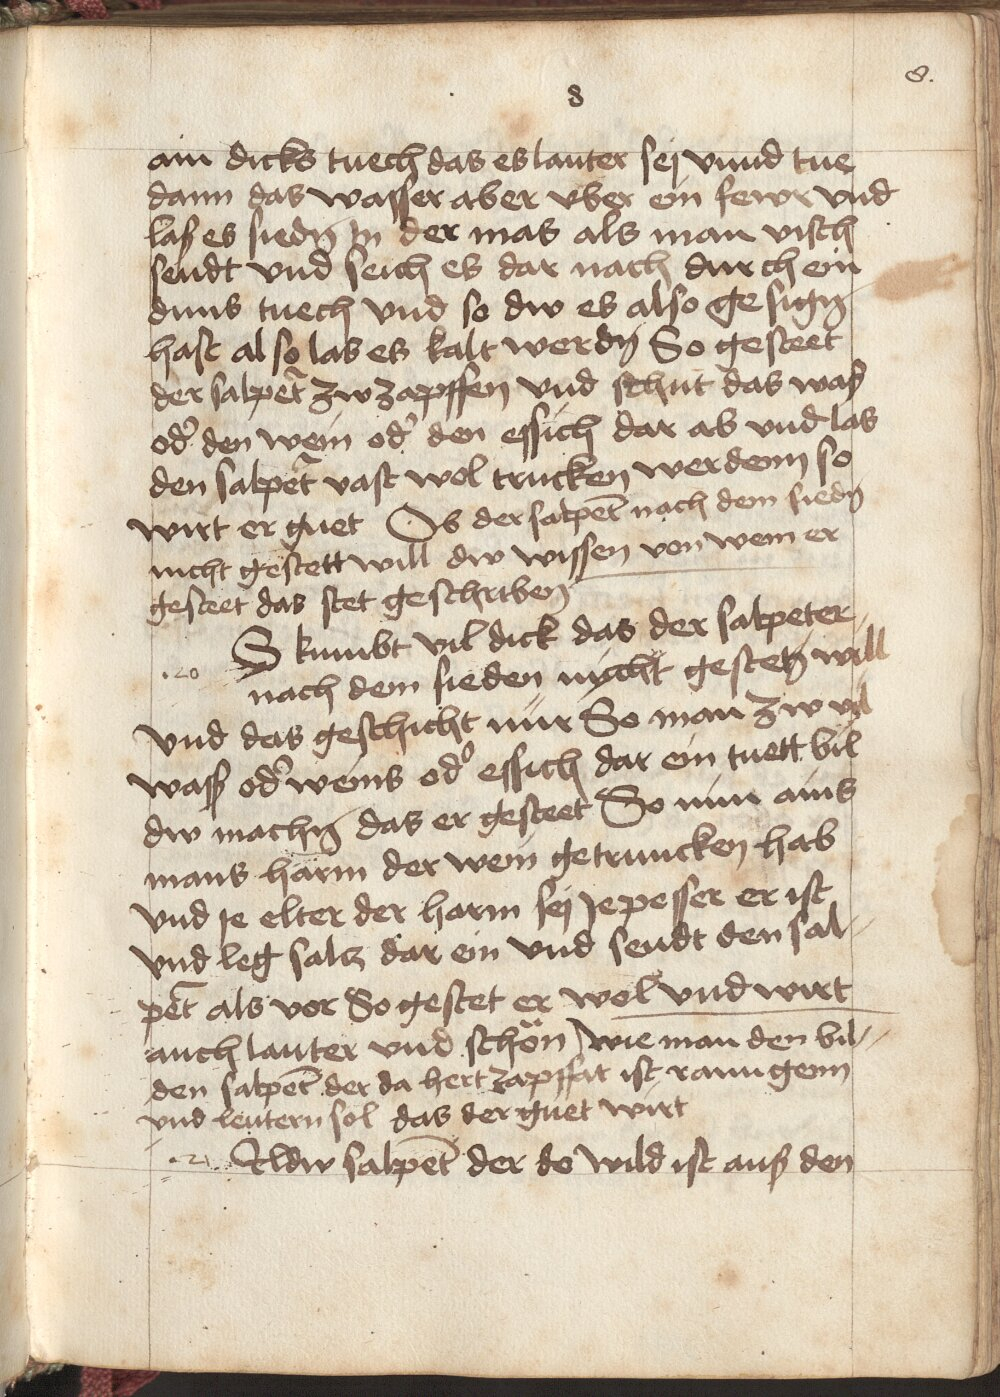 8.
8
ain dicks tuech das es lauter sej vnnd tue
dann das wasser aber vber ein fewr vnd
laß es siedn̄ Jn der mas als man visch
seudt vnd seich es dar nach durch ein
duns tuech vnd so dw es also gesign̄
hast also las es kalt werdn̄ So gesteet
der salpet̄ zw zapffen vnd schut das waß
od̾ den wein od̾ den essich dar ab vnd las
den salpet̄ vast wol trucken werdenn so
wirt er guet Ob der salpet̄ nach dem siedn̄
nicht gestett will dw wissen von wem er
gesteet das stet geschriben
.20 S kumbt vil dick das der salpeter
nach dem sieden nycht gesteen̄ will
Vnd das geschicht nur So man zw vil
waß od̾ weins od̾ essich dar ein tuett bil
dw machn̄ das er gesteet So nim ains
mans harm der wein getruncken hab
Vnd je elter der harm sej Je pesser er ist
Vnd leg salz dar ein vnd seudt den sal-
pet̄ als vor So gestet er wol vnd wirt
auch lauter vnd schön wie man den bil-
den salpet̄ der da hert zapffat ist raunigenn
vnd leutern sol das der guet wirt
.21 Ildw salpet̄ der do wild ist auß den